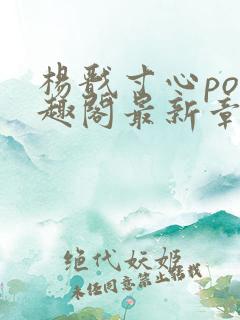 杨戬寸心po
趣阁最新章
绝代妖姬
未经同意禁止转载